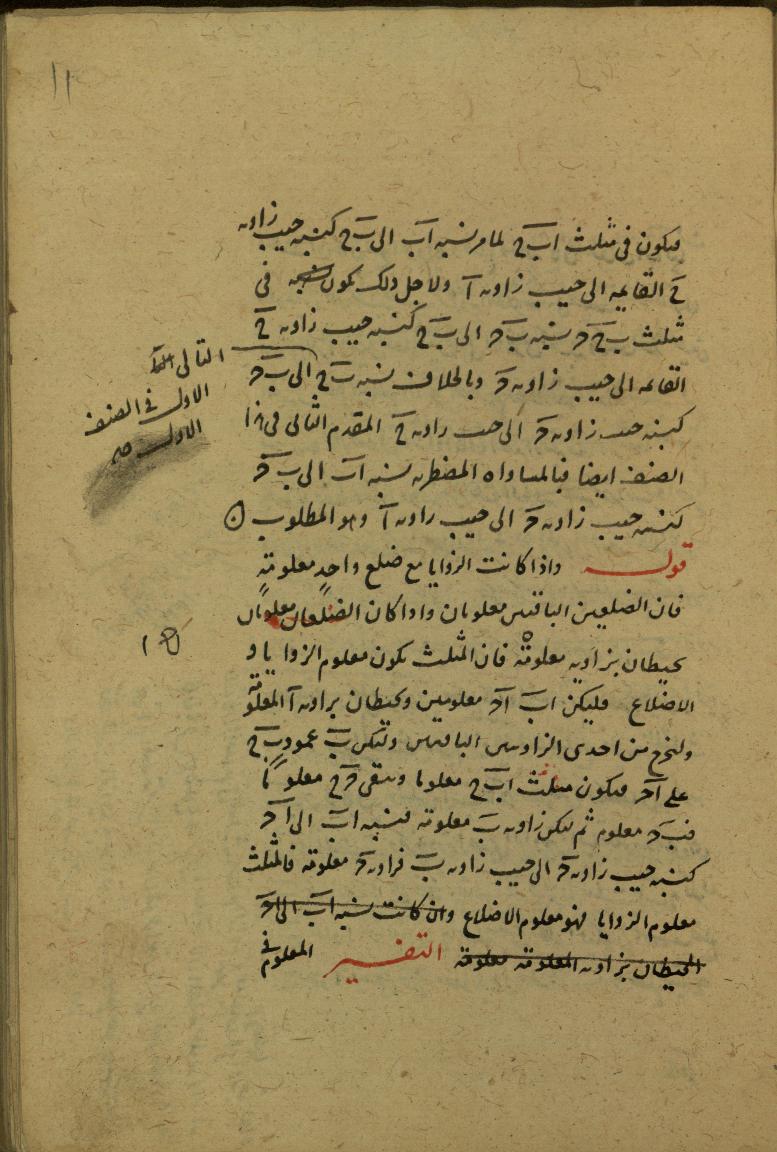 ١١
فيكون في مثلث اب ح لما مر نسبة اب الى ب ح كنسبة جيب زاوية
ح القايمه الى جيب زاوية آ ولاجل ذلك يكون نسبة في
مثلث ب ح حـ نسبة ب حـ الى ب ح كنسبة جيب زاوية ح
القايمه الى جيب زاوية حـ وبالخلاف نسبة ب ح الى ب حـ
كنسبة جيب زاوية حـ الى جيب زاوية ح المقدم التالى في هذا
الصنف ايضا فبالمساواه المضطربه نسبة اب الى ب حـ
كنسبة جيب زاوية حـ الى جيب زاوية آ وهو المطلوب
التالى المقدم
الاول في الصنف
الاول صح
قوله واذا كانت الزوايا مع ضلع واحد معلومة
فان الضلعين الباقيين معلومان واذا كان الضلعان معلومان
يحيطان بزاوية معلومة فان المثلث يكون معلوم الزوايا و
الاضلاع فليكن اب آحـ معلومين ويحيطان بزاوية آ المعلومة
ولنخرج من احدى الزاويتين الباقيتين ولتكن ب عمود ب ح
على آحـ فيكون مثلث اب ح معلوما ويبقى حـ ح معلوما
فب حـ معلوم ثم ليكن زاوية ب معلومة فنسبة اب الى آحـ
كنسبة جيب زاوية حـ الى جيب زاوية ب فزاوية حـ معلومة فالمثلث
معلوم الزوايا فهو معلوم الاضلاع وان كانت نسبة اب الى آحـ
المحيطان بزاوية المعلومة معلومة التفسير المعلوم في